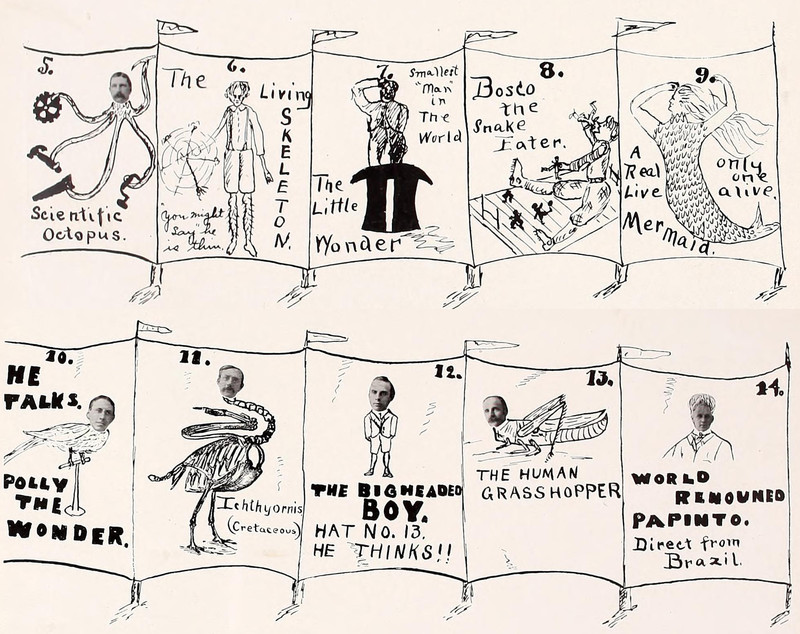 5.
Scientific
Octopus.
6.
The Living
SKELETON.
"you might
say" he
is thin.
7.
Smallest
"Man"
in
The
World
The
Little
Wonder
8.
Bosco
the
Snake
Eater.
9.
A
Real
Live
only
one
alive.
Mermaid.
10.
HE
TALKS.
POLLY
THE
WONDER.
11.
Ichthyornis
(Cretaceous)
12.
THE BIGHEADED
BOY.
HAT NO. 13.
HE THINKS!!
13.
THE HUMAN
GRASSHOPPER
14.
WORLD
RENOUNED
PAPINTO.
Direct from
Brazil.